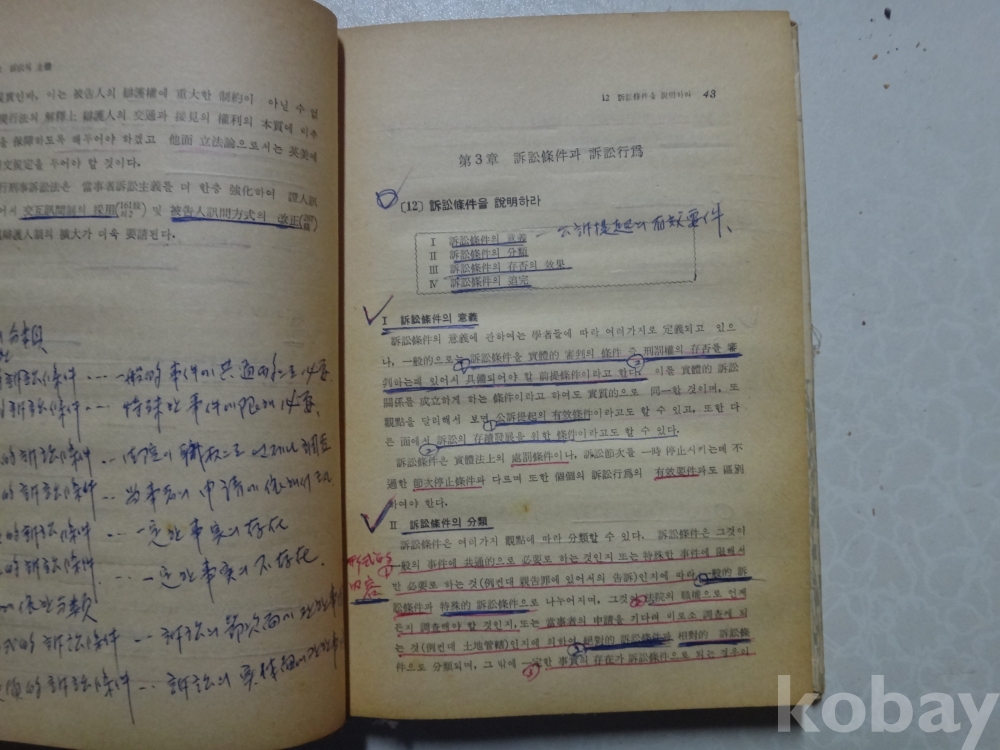 訴訟의 主體
이는 被告人의 辯護權에 重大한 制約이 아닐 수 없
現行法의 解釋上 辯護人의 交通과 接見의 權利의 本質에 비추
保障하도록 해두어야 하겠고 他面 立法論으로서는 英美에
規定을 두어야 할 것이다.
行刑事訴訟法은 當事者訴訟主義를 더 한층 強化하여 證人訊
어서 交互訊問制의 採用 및 被告人訊問方式의 改正
辯護人制의 擴大가 더욱 要請된다.
訴訟條件 ... 一般的 事件에 共通的으로 必要
訴訟條件 ... 特殊한 事件에 限해 必要.
的 訴訟條件 ... 法院이 職權으로 언제나 調査
的 訴訟條件 ... 當事者의 申請에 依해서
的 訴訟條件 ... 一定한 事實의 存在
的 訴訟條件 ... 一定한 事實의 不存在.
에 依한 分類
的 訴訟條件 ... 訴訟의 節次面에
的 訴訟條件 ... 訴訟의 實體面에
12 訴訟條件을 說明하라 43
第3章 訴訟條件과 訴訟行爲
〔12〕 訴訟條件을 說明하라
Ⅰ 訴訟條件의 意義 — 公訴提起의 有效要件.
Ⅱ 訴訟條件의 分類
Ⅲ 訴訟條件의 存否의 效果
Ⅳ 訴訟條件의 追完
Ⅰ 訴訟條件의 意義
訴訟條件의 意義에 관하여는 學者들에 따라 여러가지로 定義되고 있으
나, 一般的으로는 訴訟條件을 實體的 審判의 條件 즉 刑罰權의 存否를 審
判하는데 있어서 具備되어야 할 前提條件이라고 한다. 이를 實體的 訴訟
關係를 成立하게 하는 條件이라고 하여도 實質的으로 同一한 것이며, 또
觀點을 달리해서 보면 公訴提起의 有效條件이라고도 할 수 있고, 또한 다
른 面에서 訴訟의 存續發展을 위한 條件이라고도 할 수 있다.
訴訟條件은 實體法上의 處罰條件이나, 訴訟節次를 一時 停止시키는데 不
過한 節次停止條件과 다르며 또한 個個의 訴訟行爲의 有效要件과도 區別
하여야 한다.
Ⅱ 訴訟條件의 分類
訴訟條件은 여러가지 觀點에 따라 分類할 수 있다. 訴訟條件은 그것이
形式的 一般의 事件에 共通的으로 必要로 하는 것인지 또는 特殊한 事件에 限해서
內容 만 必要로 하는 것(例컨대 親告罪에 있어서의 告訴)인지에 따라 一般的 訴
訟條件과 特殊的 訴訟條件으로 나누어지며, 그것이 法院의 職權으로 언제
든지 調査해야 할 것인지, 또는 當事者의 申請을 기다려 비로소 調査해야 되
는 것(例컨대 土地管轄)인지에 의하여 絕對的 訴訟條件과 相對的 訴訟條
件으로 分類되며, 그 밖에 一定한 事實의 存在가 訴訟條件으로 되는 경우이
kobay